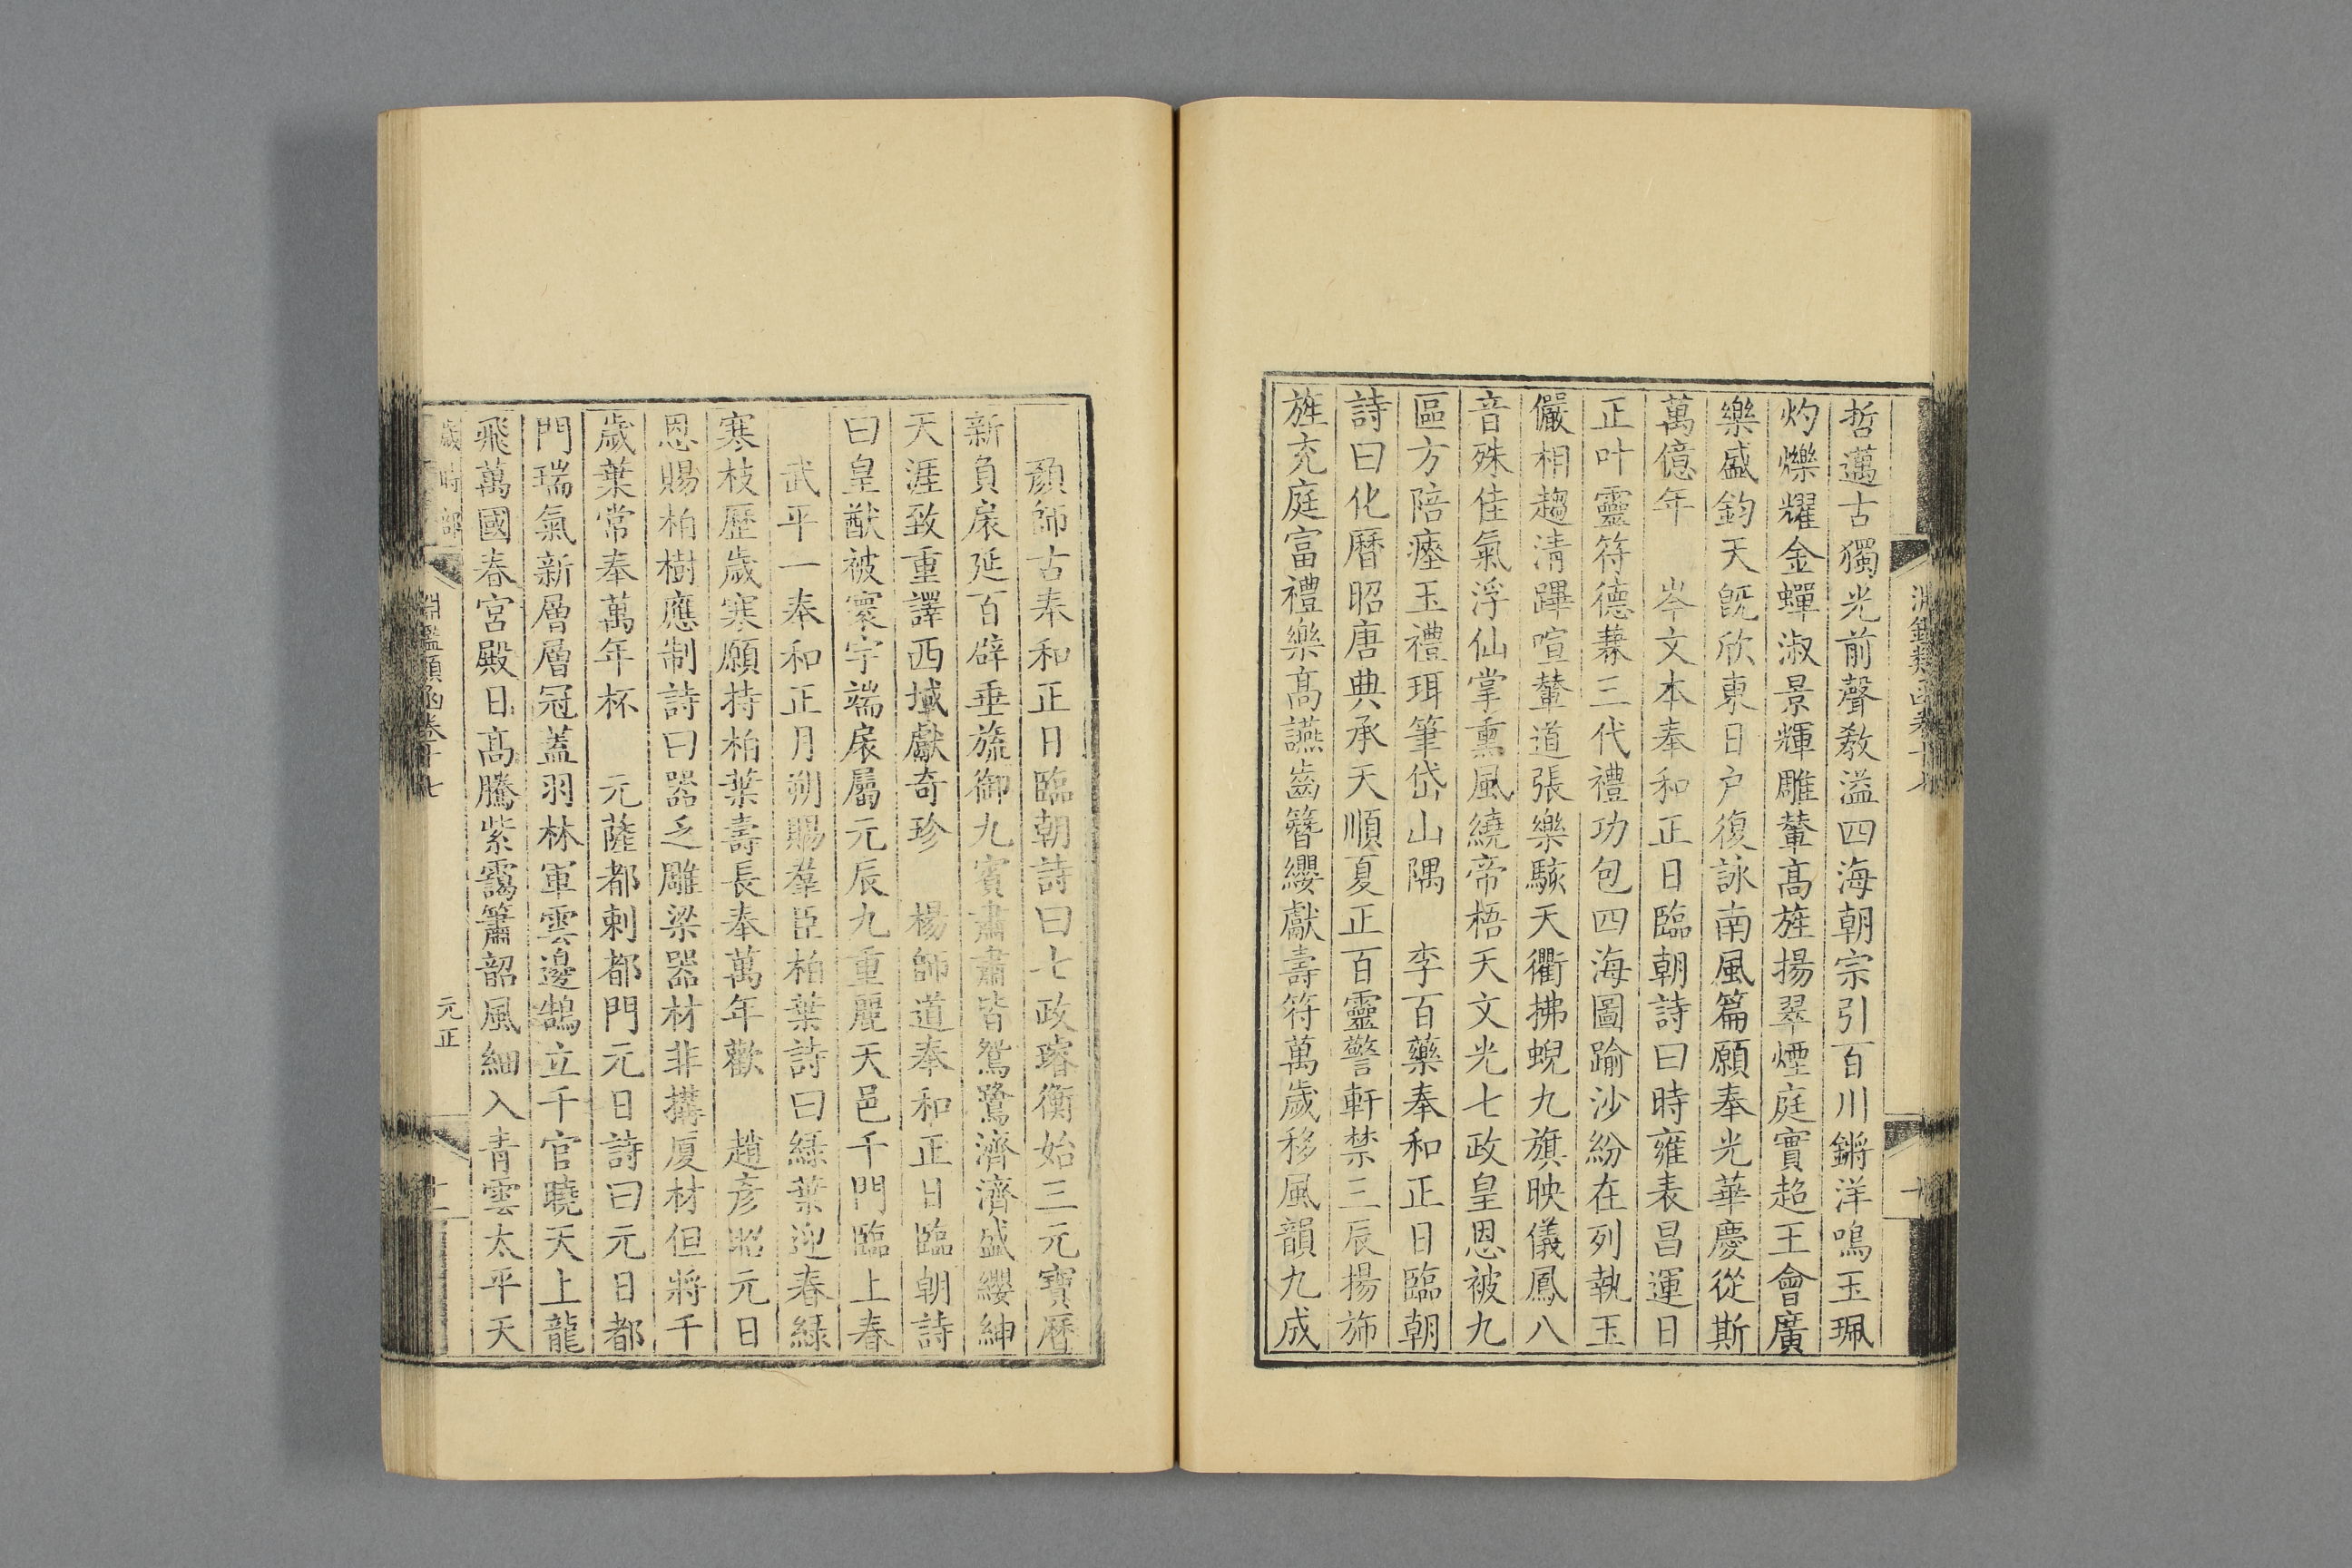 哲邁古獨光前聲敎溢四海朝宗引百川鏘洋鳴玉珮
灼爍耀金蟬淑景輝雕輦髙旌揚翠煙庭實超王會廣
樂盛鈞天旣欣東日户復詠南風篇願奉光華慶從斯
萬億年　岑文本奉和正日臨朝詩曰時雍表昌運日
正叶靈符德兼三代禮功包四海圖踰沙紛在列執玉
儼相趨清蹕喧輦道張樂駭天衢拂蜺九旗映儀鳳八
音殊佳氣浮仙掌熏風繞帝梧天文光七政皇恩被九
區方陪瘞玉禮珥筆岱山隅　李百藥奉和正日臨朝
詩曰化曆昭唐典承天順夏正百靈警軒禁三辰揚斾
旌充庭富禮樂髙讌齒簪纓獻壽符萬歲移風韻九成
顏師古奉和正日臨朝詩曰七政璿衡始三元寶曆
新負扆延百辟垂旒御九賓肅肅皆鴛鷺濟濟盛纓紳
天涯致重譯西域獻奇珍　楊師道奉和正日臨朝詩
曰皇猷被寰宇端扆屬元辰九重麗天邑千門臨上春
武平一奉和正月朔賜羣臣柏葉詩曰綠葉迎春綠
寒枝歷歲寒願持柏葉壽長奉萬年歡　趙彦昭元日
恩賜柏樹應制詩曰器乏雕梁器材非搆厦材但將千
歲葉常奉萬年杯　元薩都剌都門元日詩曰元日都
門瑞氣新層層冠蓋羽林軍雲邊鵠立千官曉天上龍
飛萬國春宮殿日髙騰紫靄簫韶風細入青雲太平天
歲時部
淵鑑類函卷十七
元正
十一